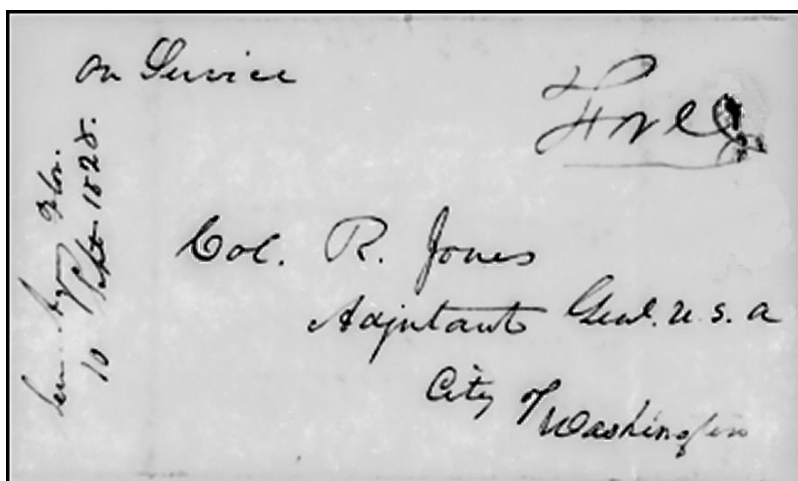 On Service
Free
Col. R. Jones
Adjutant Genl. U. S. A
City of Washington
Flor.
10 Sept 1828.